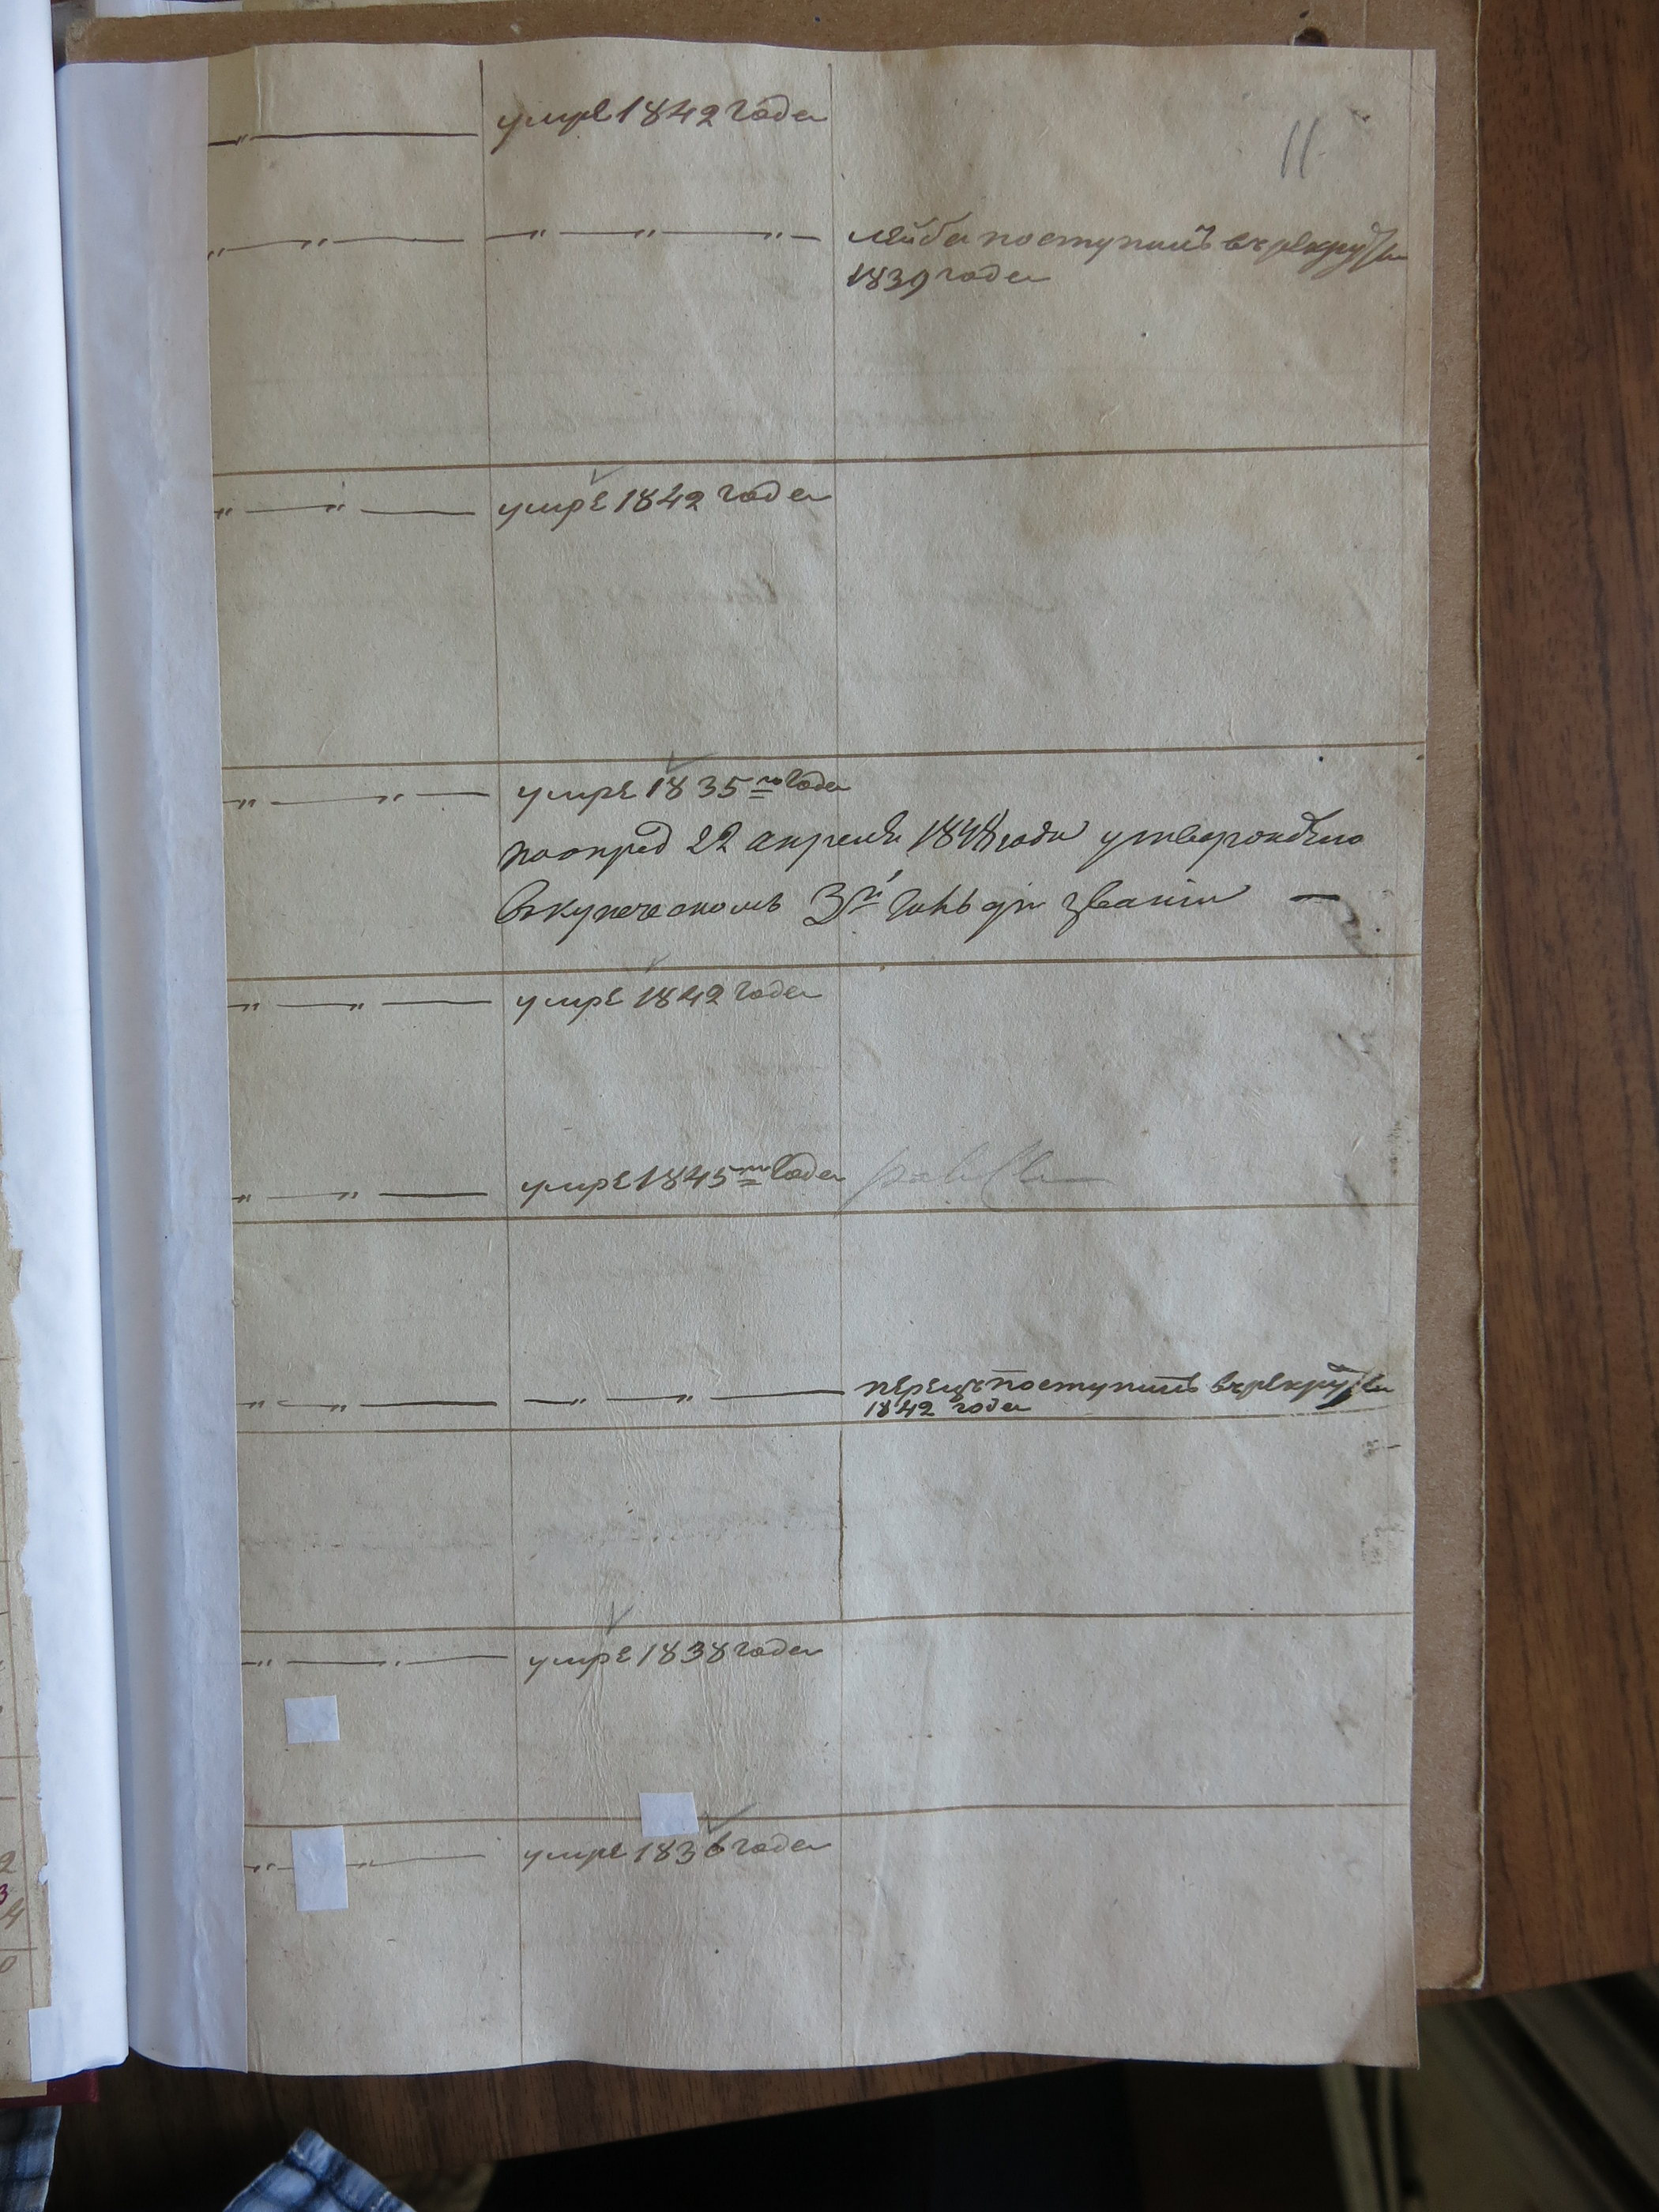 умре 1842 года
11
лейба поступилъ въ рекруты
1839 года
умре 1842 года
умре 1835го года
по опред 22 апреля 1848 года утверждено
въ купеческомъ 3й гильдіи званіи —
умре 1842 года
умре 1845го года
перецъ поступилъ въ рекруты
1842 года
умре 1838 года
умре 1836 года
2
3
4
0